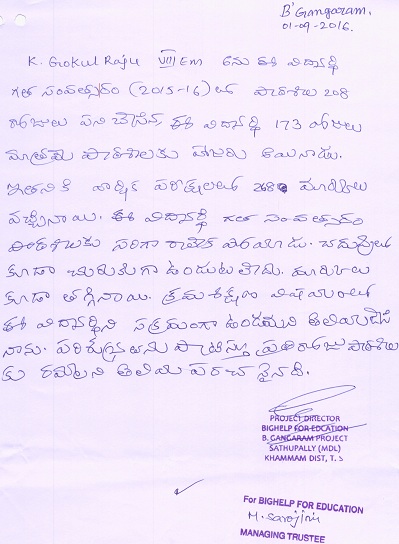 B'Gangaram.
01-09-2016.
K. Gokul Raju VIII Em అను ఈ విద్యార్థి
గత సంవత్సరం (2015-16) లో పాఠశాల 208
రోజులు పని చేసిన, ఈ విద్యార్థి 173 రోజులు
మాత్రమే పాఠశాలకు హాజరు అయినాడు.
ఇతనికి వార్షిక పరీక్షలలో 268 మార్కులు
వచ్చినాయి. ఈ విద్యార్థి గత సంవత్సరం
పాఠశాలకు సరిగా రాలేక పోయాడు. చదువులో
కూడా చురుకుగా ఉండుటలేదు. మార్కులు
కూడా తగ్గినాయి. క్రమశిక్షణ విషయంలో
ఈ విద్యార్థిని సక్రమంగా ఉండమని తెలియజేసి
నాను. పరిశుభ్రతను పాటిస్తూ ప్రతిరోజు పాఠశాల
కు రమ్మని తెలియ పరచనైనది.
PROJECT DIRECTOR
BIGHELP FOR EDCATION
B. GANGARAM PROJECT
SATHUPALLY (MDL)
KHAMMAM DIST, T. S
For BIGHELP FOR EDUCATION
M. Sarojini
MANAGING TRUSTEE